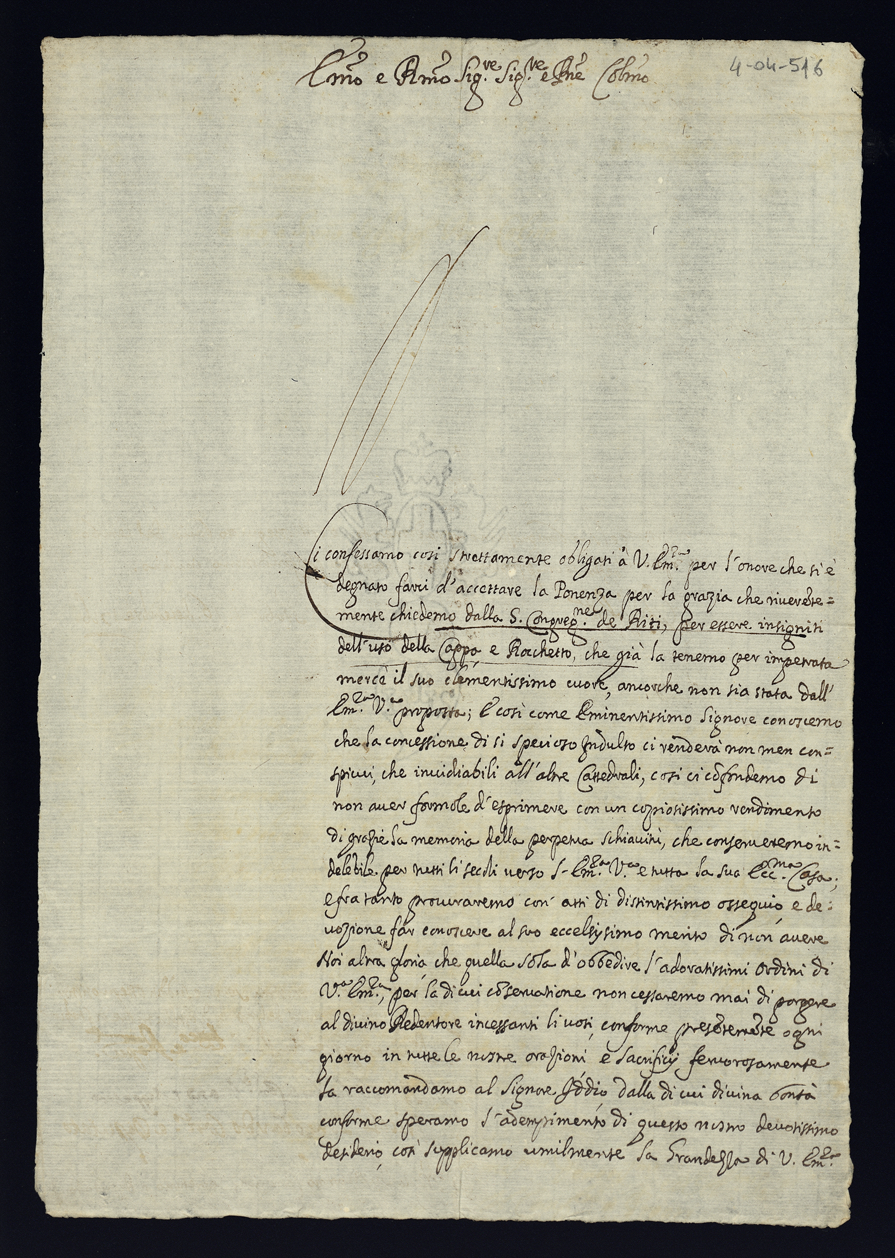 4-04-516
Em̃o e Rmõ Sig.re Sig.re e Pñe Colmõ
Ci confessamo così strettamente obligati à V. Em.za per l'onore che si è
degnato farci d'accettare la Ponenza per la grazia che riverẽte=
mente chiedemo dalla S. Congreg.ne de Riti, per essere insigniti
dell'uso della Cappa e Rocchetto, che già la tenemo per impetrata
mercè il suo clementissimo cuore, ancorche non sia stata dall'
Em.za V.a proposta; E così come Eminentissimo Signore conoscemo
che la concessione di si specioso Indulto ci renderà non men con=
spicui, che invidiabili all'altre Cattedrali, così ci cõfondemo di
non aver formole d'esprimere con un copiosissimo rendimento
di grazie la memoria della perpetua schiavitù, che conserveremo in=
delebile per tutti li secoli verso l'Em.za V.a e tutta la sua Ecc.ma Casa;
e fra tanto procuraremo con atti di distintissimo ossequio, e de=
vozione far conoscere al suo eccelsissimo merito di non avere
Noi altra gloria che quella sola d'obbedire l'adoratissimi ordini di
V.a Em.za, per la di cui cõservatione non cessaremo mai di porgere
al divino Redentore incessanti li voti, conforme presẽtemẽte ogni
giorno in tutte le nostre orazioni e Sacrificij fervorosamente
la raccomandamo al Signore Iddio dalla di cui divina bontà
conforme speramo l'adempimento di questo nostro devotissimo
desiderio, così supplicamo umilmente la Grandezza di V. Em.za